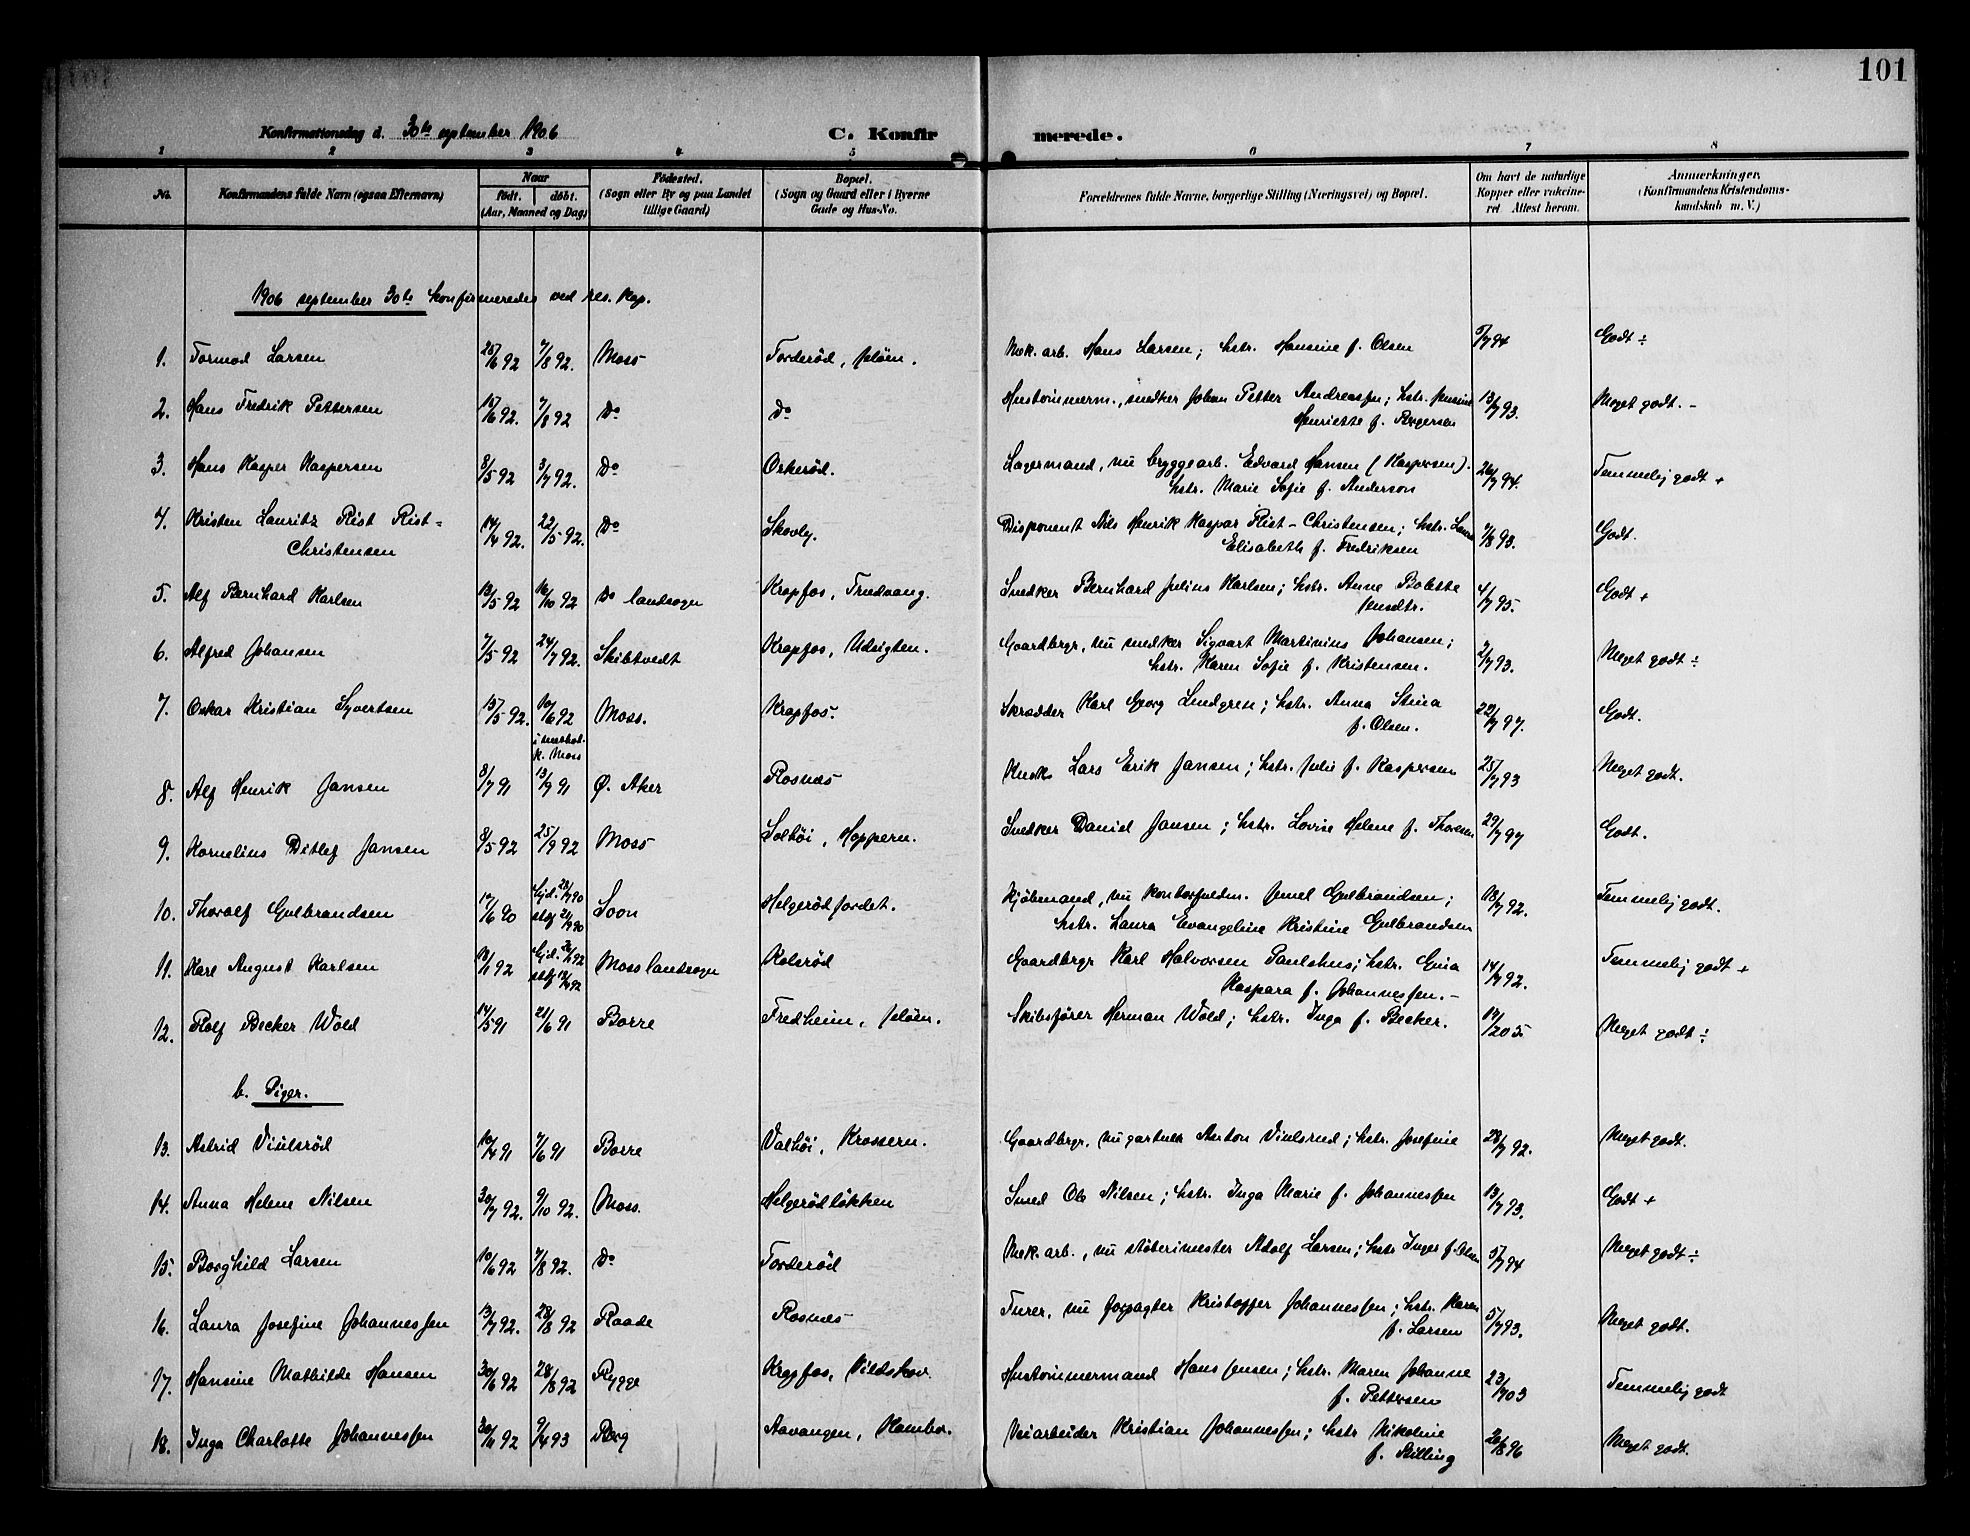 101
Konfirmationsdag d. 30te september 1906 C. Konfirmerede.
1 2 3 4 5 6 7 8
No. Konfirmandens fulde Navn (ogsaa Efternavn) Naar født. døbt. (Aar, Maaned og Dag) Fødested. (Sogn eller By og paa Landet tillige Gaard) Bopæl. (Sogn og Gaard eller i Byerne Gade og Hus-No. Forældrenes fulde Navne, borgerlige Stilling (Næringsvei) og Bopæl. Om havt de naturlige Kopper eller vaccineret Attest herom. Anmerkninger, (Konfirmandens Kristendomskundskab m. V.)
1906 september 30te konfirmeredes ved res. kap.
1. Tormod Larsen 25/6 92 7/8 92. Moss Torderød, Jeløen. Mek. arb. Hans Larsen; hstr. Hansine f. Olsen 5/7 94 Godt ÷
2. Hans Fredrik Pettersen 15/6 92. 7/8 92 Do Do Hustømmerm., snedker Johan Petter Andreassen; hstr. Jensine 13/7 93. Meget godt. -
Henriette f. Børgersen
3. Hans Kasper Kaspersen 8/5 92 3/7 92. Do Orkerød. Lagermand, nu bryggearb. Edvard Hansen (Kaspersen). 26/7 94. Temmelig godt +
hstr. Marie Sofie f. Anderson
4. Kristen Lauritz Rist Rist- 14/4 92. 22/5 92. Do Skovly. Disponent Nils Henrik Kaspar Rist-Christensen; hstr. Laura 7/8 93. Godt.
Christensen Elisabeth f. Fredriksen
5. Alf Bernhard Karlsen 13/5 92 16/10 92 Do landsogn Krapfos, Trudvang. Snedker Bernhard Julius Karlsen; hstr. Anne Bolette 4/7 95. Godt +
Jensdtr.
6. Alfred Johansen 7/5 92 24/7 92. Skibtvedt Krapfos, Udsigten. Gaardbrgr, nu snedker Sigvart Martinius Johansen; 2/7 93. Meget godt ÷
hstr. Karen Sofie f. Kristensen.
7. Oskar Kristian Syvertsen 15/5 92. 10/6 92 Moss. Krapfos. Skrædder Karl Georg Lindgren; hstr. Anna Stina 22/7 97. Godt.
i methol. k. Moss f. Olsen.
8. Alf Henrik Jansen 8/7 91 13/9 91 Ø. Aker Rosnæs Kusk Lars Erik Jansen; hstr. Julie f. Kaspersen 25/7 93 Meget godt.
9. Kornelius Ditlef Jansen 8/5 92 25/9 92 Moss Solhøi, Hoppern. Snedker Daniel Jansen; hstr. Lovise Helene f. Thoresen 29/7 97 Godt.
10. Thoralf Gulbrandsen 17/6 90 Soon Helgerødjordet. Kjøbmand, nu kontorfuldm. Jemel Gulbrandsen; 18/7 92. Temmelig godt.
hstr. Laura Evangeline Kristine Gulbrandsen
11. Karl August Karlsen 18/1 92 Moss landsogn Kolsrød Gaardbrgr Karl Halvorsen Paulshus; hstr. Gina 14/7 92. Temmelig godt +
Kaspara f. Johannessen. -
12. Rolf Becker Wold 14/5 91 21/6 91 Borre Fredheim, Jeløen. Skibsfører Herman Wold; hstr. Inga f. Becker. 17/2 05. Meget godt ÷
b. Piger.
13. Astrid Viulsrød 10/4 91 7/6 91 Borre Valhøi, Krossern. Gaardbrgr. nu gartner Anton Viulsrud; hstr. Josefine 28/7 92. Meget godt.
14. Anna Helene Nilsen 30/7 92. 9/10 92. Moss. Helgerødløkken Smed Ole Nilsen; hstr. Inga Marie f. Johannessen 13/7 93. Godt +
15. Borghild Larsen 10/6 92 7/8 92. Do Torderød Mek. arb., nu støberimester Adolf Larsen; hstr Inger f. Olsen 5/7 94 Meget godt ÷
16. Laura Josefine Johannessen 13/7 92. 28/8 92 Raade Rosnæs Furer, nu forpagter Kristoffer Johannessen; hstr. Karen 5/7 93. Meget godt.
f. Larsen
17. Hansine Mathilde Hansen 30/6 92 28/8 92 Rygge Krapfos, Vildskov. Hustømmermand Hans Jensen; hstr. Maren Johanne 23/7 03 Temmelig godt
f. Pettersen
18. Inga Charlotte Johannessen 30/11 92 9/4 93 Borg Aavangen, Kambo. Veiarbeider Kristian Johannessen; hstr Nikoline 26/8 96 Meget godt.
f. Rilling